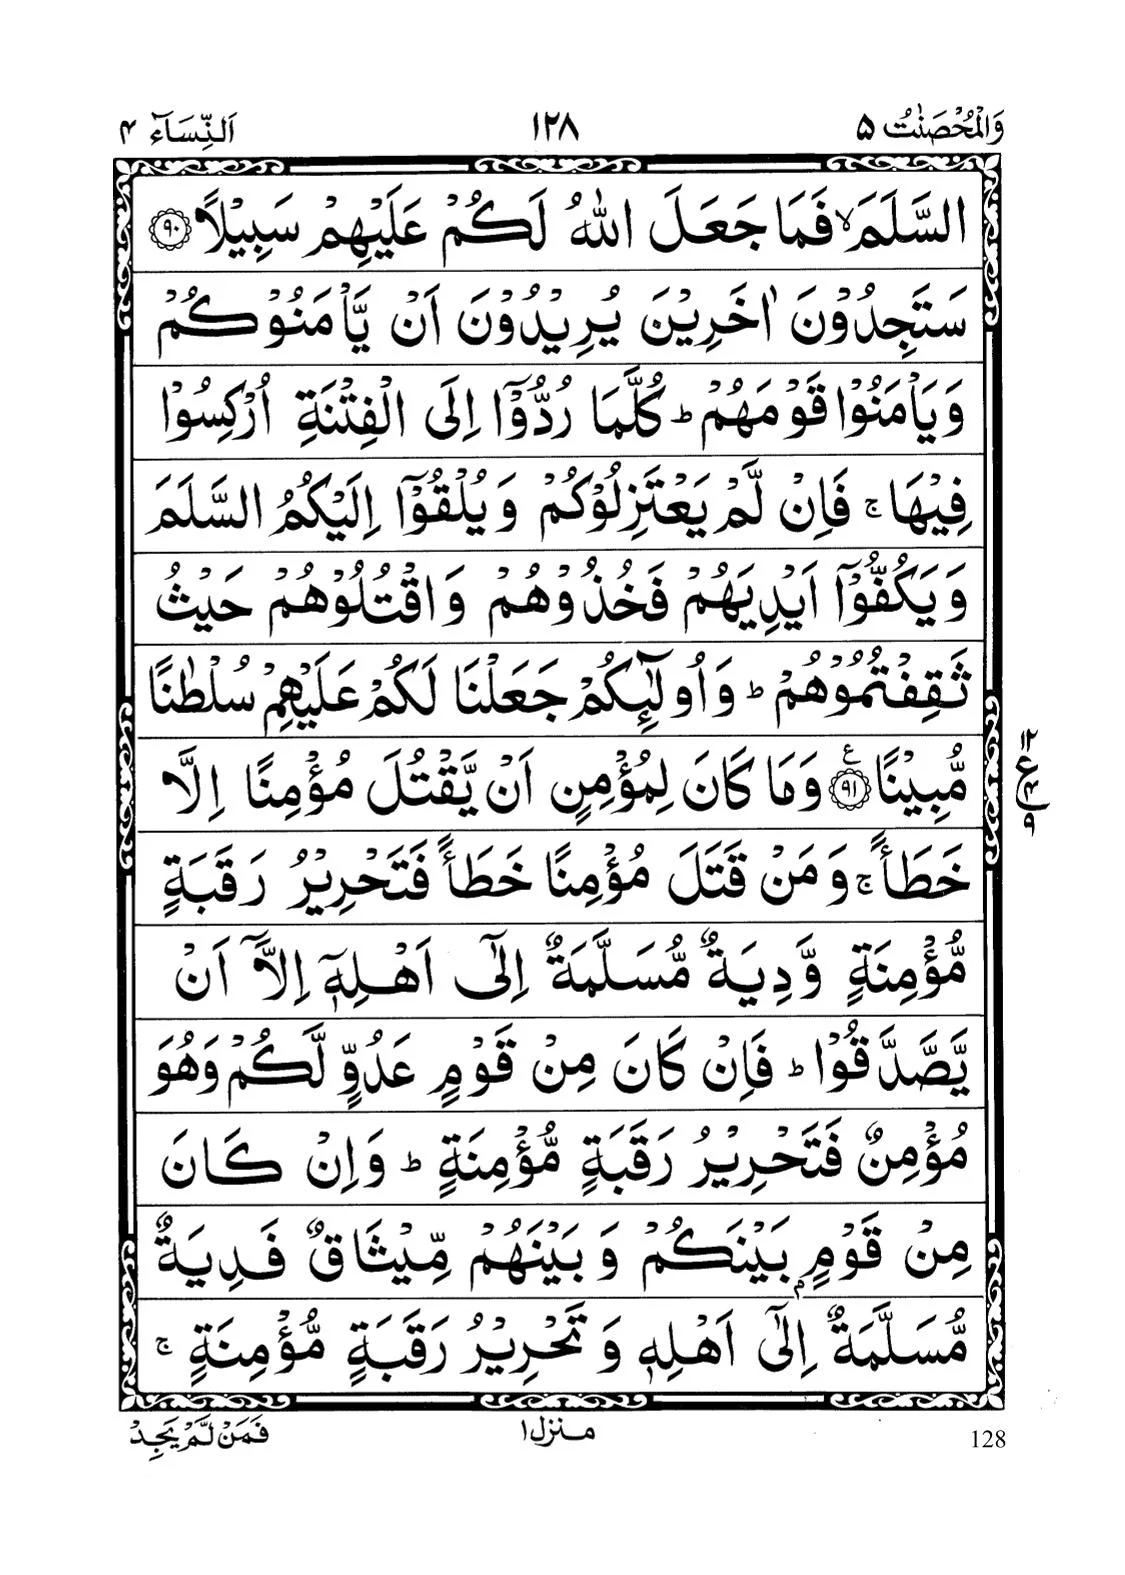 وَالْمُحْصَنٰتُ ۵ ۱۲۸ اَلنِّسَآء ۴
السَّلَمَ ۙ فَمَا جَعَلَ اللّٰهُ لَكُمْ عَلَيْهِمْ سَبِيْلًا ۹۰
سَتَجِدُوْنَ اٰخَرِيْنَ يُرِيْدُوْنَ اَنْ يَّاْمَنُوْكُمْ
وَيَاْمَنُوْا قَوْمَهُمْ ؕ كُلَّمَا رُدُّوْۤا اِلَى الْفِتْنَةِ اُرْكِسُوْا
فِيْهَا ۚ فَاِنْ لَّمْ يَعْتَزِلُوْكُمْ وَيُلْقُوْۤا اِلَيْكُمُ السَّلَمَ
وَيَكُفُّوْۤا اَيْدِيَهُمْ فَخُذُوْهُمْ وَاقْتُلُوْهُمْ حَيْثُ
ثَقِفْتُمُوْهُمْ ؕ وَاُولٰٓئِكُمْ جَعَلْنَا لَكُمْ عَلَيْهِمْ سُلْطٰنًا
مُّبِيْنًا ۹۱ ع وَمَا كَانَ لِمُؤْمِنٍ اَنْ يَّقْتُلَ مُؤْمِنًا اِلَّا
۱۲
ع
۴
۹
خَطَـًٔا ۚ وَمَنْ قَتَلَ مُؤْمِنًا خَطَـًٔا فَتَحْرِيْرُ رَقَبَةٍ
مُّؤْمِنَةٍ وَّدِيَةٌ مُّسَلَّمَةٌ اِلٰۤى اَهْلِهٖۤ اِلَّاۤ اَنْ
يَّصَّدَّقُوْا ؕ فَاِنْ كَانَ مِنْ قَوْمٍ عَدُوٍّ لَّكُمْ وَهُوَ
مُؤْمِنٌ فَتَحْرِيْرُ رَقَبَةٍ مُّؤْمِنَةٍ ؕ وَاِنْ كَانَ
مِنْ قَوْمٍۭ بَيْنَكُمْ وَبَيْنَهُمْ مِّيْثَاقٌ فَدِيَةٌ
مُّسَلَّمَةٌ اِلٰۤى اَهْلِهٖ وَتَحْرِيْرُ رَقَبَةٍ مُّؤْمِنَةٍ ۚ
فَمَنْ لَّمْ يَجِدْ منزل۱ 128